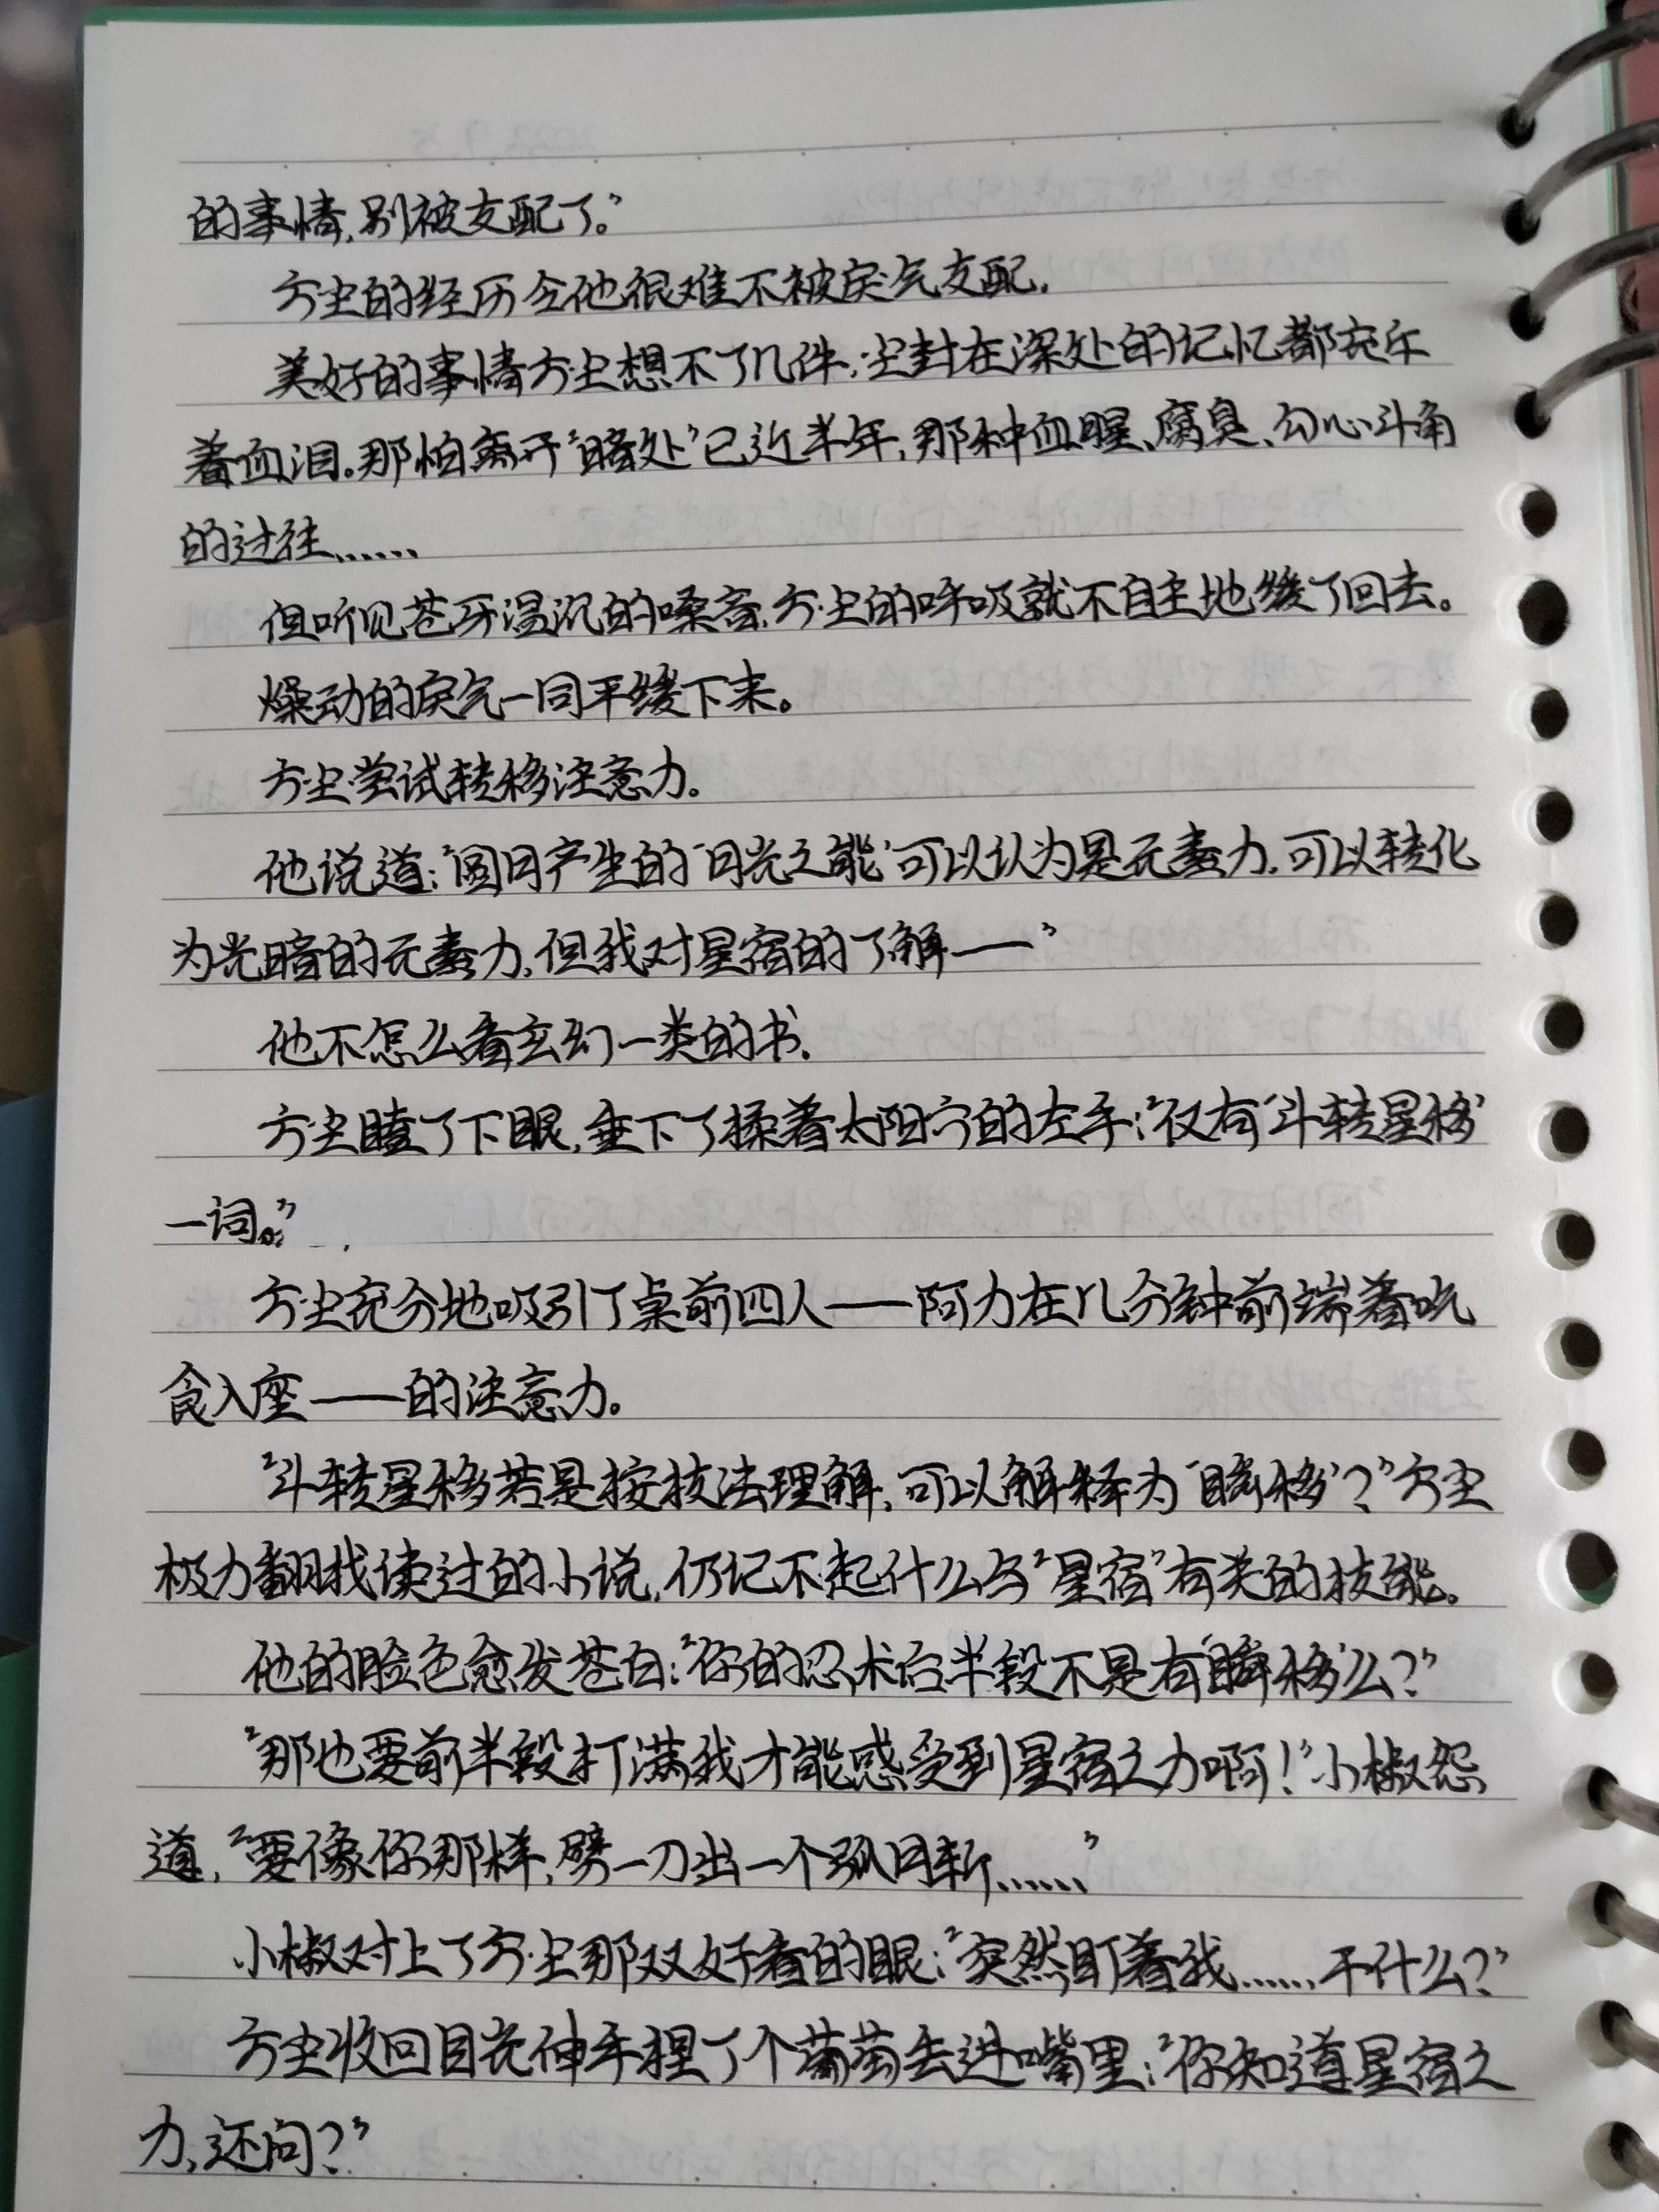 的事情,别被支配了。”
方尘的经历令他很难不被戾气支配.
美好的事情方尘想不了几件;尘封在深处的记忆都充斥
着血泪。那怕离开“暗处”已近半年,那种血腥、腐臭、勾心斗角
的过往……
但听见苍牙温沉的嗓音,方尘的呼吸就不自主地缓了回去。
燥动的戾气一同平缓下来。
方尘尝试转移注意力。
他说道:“圆月产生的‘月光之能’可以认为是元素力.可以转化
为光暗的元素力,但我对星宿的了解——”
他不怎么看玄幻一类的书.
方尘瞌了下眼,垂下了揉着太阳穴的左手:“仅有‘斗转星移’
一词。”
方尘充分地吸引了桌前四人——阿力在几分钟前端着吃
食入座——的注意力。
“斗转星移若是按技法理解,可以解释为‘瞬移’?”方尘
极力翻找读过的小说,仍记不起什么与“星宿”有关的技能。
他的脸色愈发苍白:“你的忍术后半段不是有‘瞬移’么?”
“那也要前半段打满我才能感受到星宿之力啊!”小椒怨
道,“要像你那样,劈一刀出一个弧月斩……”
小椒对上了方尘那双好看的眼:“突然盯着我……干什么?”
方尘收回目光伸手捏了个葡萄丢进嘴里:“你知道星宿之
力,还问?”